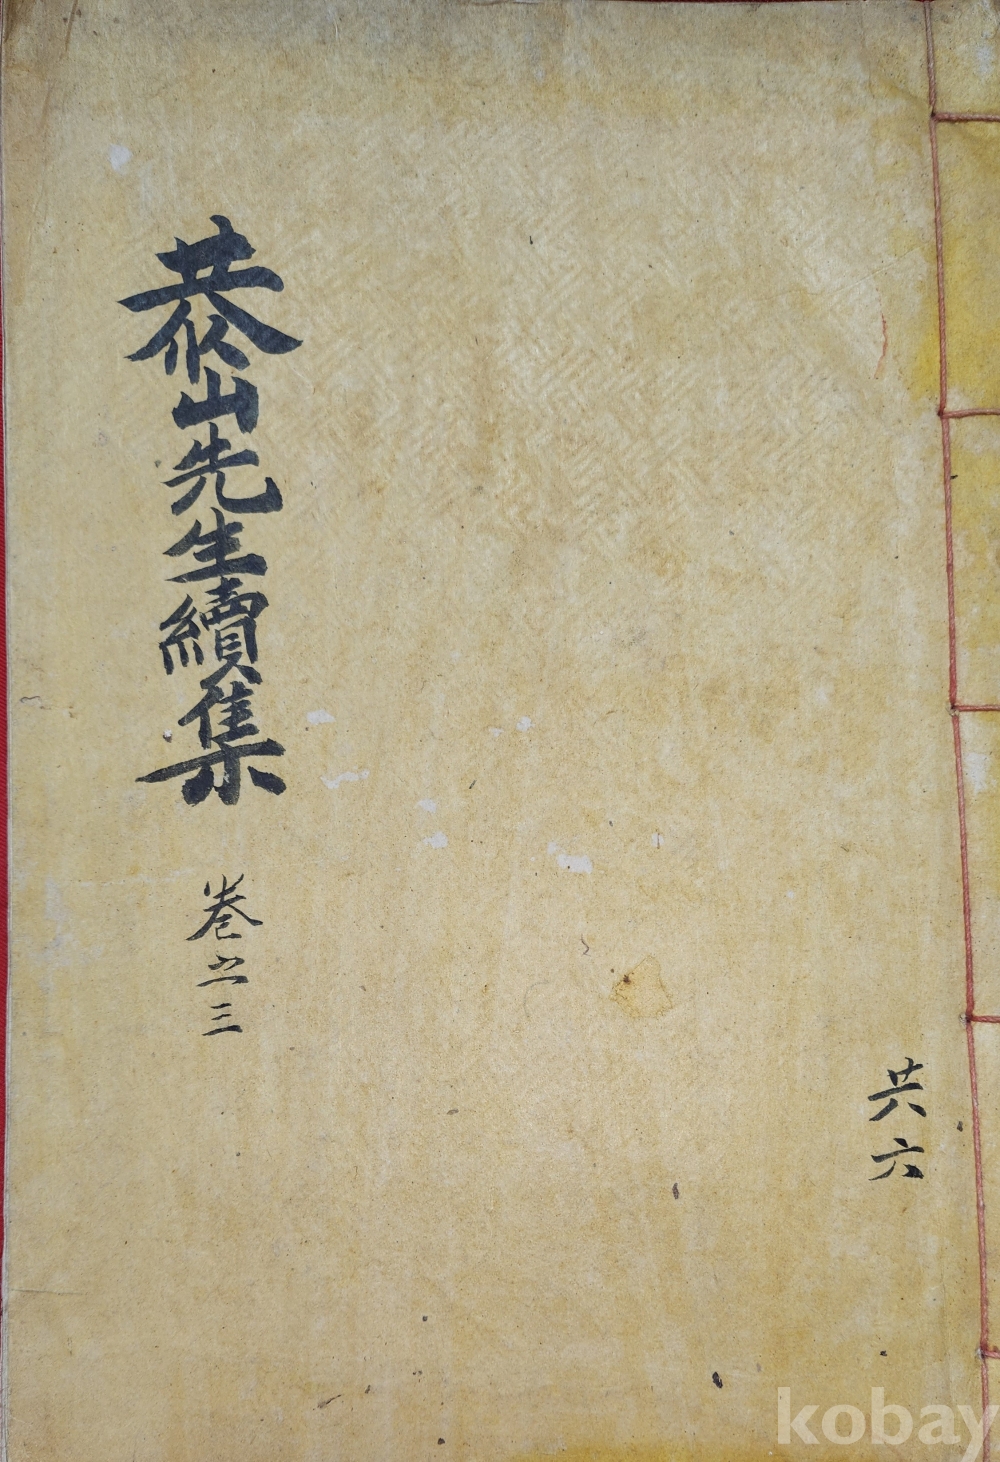 恭山先生續集
卷之三
共六
kobay